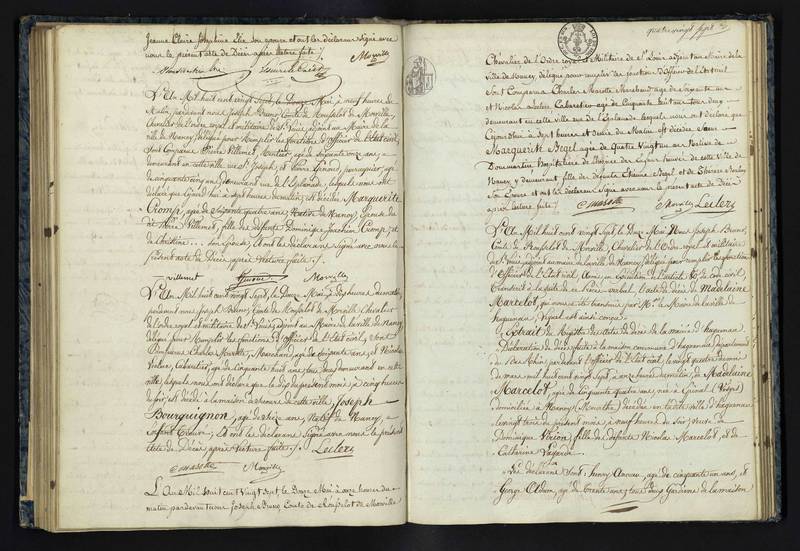 Jeanne Claire Josephine Elie son epouse et ont les déclarans Signé avec
nous le present acte de Décès après lecture faite
Morville
L'An Mil huit cent vingt Sept, le Douze Mai, à neuf heures du
Matin, pardevant nous Joseph Bruno Comte de Morville,
Chevalier de l'ordre royal et militaire de St Louis, adjoint au Maire de la
ville de Nancy, délégué pour Remplir les fonctions d'officier de l'Etat civil,
Sont Comparus Pierre Villemet, Rentier, agé de soixante onze ans,
demeurant en cette ville rue St Joseph, et Pierre perruquier, agé
de cinquante cinq ans, demeurant rue de l'Esplanade, lesquels nous ont
déclaré que à sept heures du matin, est décédée Marguerite
Cromp, agée de soixante quatre ans, Native de Nancy, Epouse du
dit Pierre Villemet, fille des défunts Dominique Joachim Cromp, et
de Christine ... son Epouse, Et ont les déclarans Signé avec nous le
présent acte de Décès, après Lecture faite.
Villemet Morville
L'An Mil huit cent vingt Sept, le Douze Mai, à dix heures du matin,
pardevant nous Joseph Bruno, Comte de Morville Chevalier
de l'ordre royal et militaire de St Louis, adjoint au Maire de la ville de Nancy,
délégué pour Remplir les fonctions d'officier de l'Etat civil, Sont
Comparus Charles Marotte, Marchand, agé de soixante ans, et Nicolas
Leclerc, Cabaretier, agé de Cinquante huit ans, tous deux demeurant en cette
ville, lesquels nous ont déclaré que le Dix du present mois, à cinq heures
du soir, est décédé à la maison de secours de cette ville, Joseph
Bourguignon, agé de seize ans, Natif de Nancy,
Et ont les déclarans Signé avec nous le present
acte de Décès, après Lecture faite. Leclerc
C marotte Morville
L'An Mil huit cent Vingt Sept le Douze Mai à onze heures du
matin pardevant nous Joseph Bruno Comte de Morville
quatre vingt Sept
Chevalier de l'Ordre royal et Militaire de St Louis adjoint au Maire de la
Ville de Nancy, délégué pour remplir les fonctions d'Officier de l'Etat civil
Sont Comparus Charles Marotte Marchand agé de Soixante ans
et Nicolas Leclerc Cabaretier agé de Cinquante huit ans tous deux
demeurant en cette ville rue de l'Esplanade lesquels nous ont declaré que
Cejourd'hui à Sept heures et demie du Matin est décédée Dame
Marguerite Begel agée de Quatre Vingt un ans Native de
Dommartin de Secours de cette Ville de
Nancy y demeurant fille des défunts Etienne Begel et de Thérèse
Son Epouse et ont les déclarans Signé avec nous le present acte de Décès
après lecture faite
C marotte Morville Leclerc
L'An Mil huit cent vingt Sept, le Douze Mai Nous Joseph Bruno,
Comte de Morville, Chevalier de l'Ordre royal et militaire
de St Louis, adjoint au maire de la ville de Nancy, délégué pour remplir les fonctions
d'Officier de l'Etat civil, avons en Exécution de l'article du code civil,
Transcrit à la suite du Procès verbal l'acte de décès de Madelaine
Marcelot, qui nous a été transmis par Mr le Maire de la ville de
haguenau, lequel est ainsi conçu.
Extrait du Registre des actes de décès de la mairie d'haguenau
Déclaration de Décès faite à la maison commune d'haguenau département
du Bas Rhin, pardevant l'officier de l'Etat civil, le vingt quatre du mois
de mars mil huit cent vingt sept à onze heures du matin, de Madelaine
Marcelot, agée de cinquante quatre ans, née à Epinal (Vosges)
domiciliée à Nancy (Meurthe) décédée en la dite ville d'haguenau
le vingt trois du présent mois à neuf heures du soir, veuve de
Dominique Virion, fille de défunts Nicolas Marcelot, et de
Catherine Lagarde.
Les déclarans sont henry agé de cinquante un ans, et
George Adam, agé de trente ans, tous deux gardiens de la maison